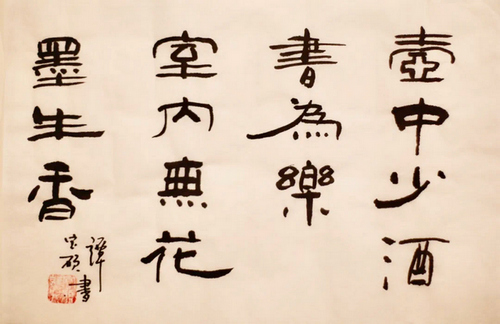 壺中少酒
書為樂
室內無花
墨生香
譚
書